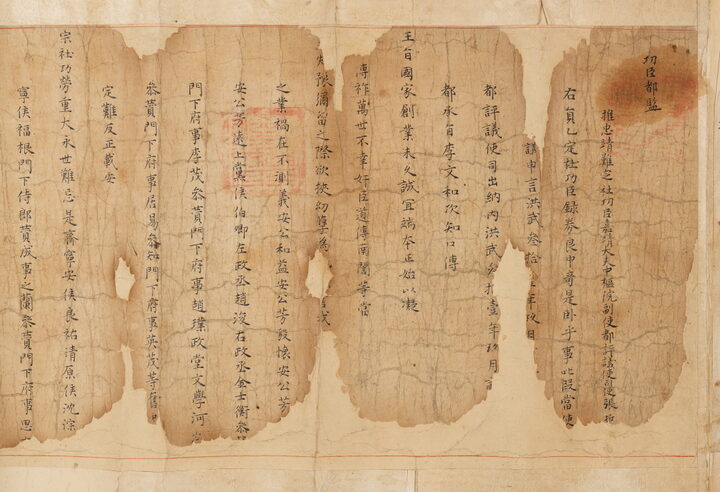 功臣都監
推忠靖難定社功臣嘉靖大夫中樞院副使都評議使司使張
右員乙定社功臣錄券良中奇是臥乎事叱段當使
謹申言洪武叁拾年玖月
都評議使司出納內洪武叁拾壹年玖月
都承旨李文和次知口傳
王旨國家創業未久誠宜端本正始以凝
傳祚萬世不幸奸臣道傳南誾等當
彌留之際欲挾幼孽爲
之業禍在不測義安公和益安公芳毅懷安公芳
安公芳遠上黨侯伯卿左政丞趙浚右政丞金士衡參
門下府事李茂參贊門下府事趙璞政堂文學河
參贊門下府事居易參知門下府事英茂等奮
定難反正載安
宗社功勞重大永世難忘是齊寧安侯良祐淸原侯沈淙
寧侯福根門下侍郎贊成事之蘭參贊門下府事思